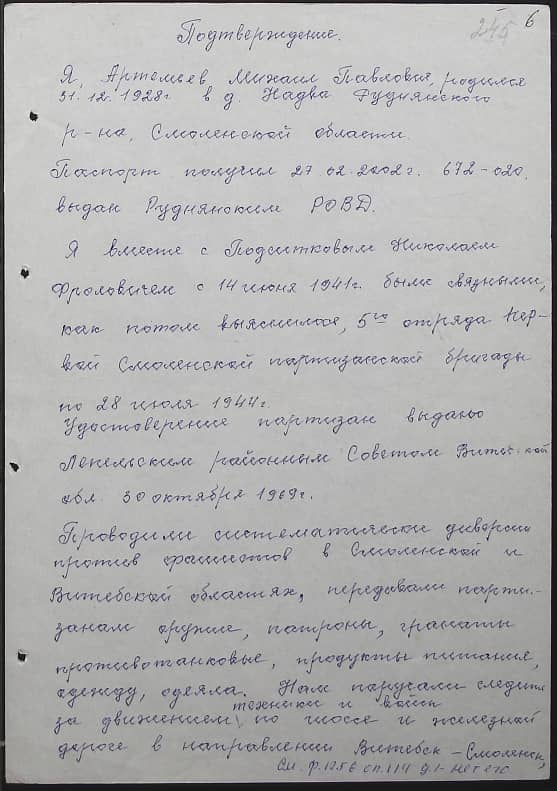 245 6
Подтверждение.
Я, Артемьев Михаил Павлович, родился
31.12.1928г в д. Надва Руднянского
р-на, Смоленской области.
Паспорт получил 27.02.2002г. 672-020.
выдан Руднянским РОВД.
Я вместе с Подситковым Николаем
Фроловичем с 14 июня 1941г. были связными,
как потом выяснилось, 5го отряда Пер-
вой Смоленской партизанской бригады
по 28 июля 1944г.
Удостоверение партизан выдано
Лепельским районным Советом Витебской
обл. 30 октября 1969г.
Проводили систематически диверсии
против фашистов в Смоленской и
Витебской областях, передавали парти-
занам оружие, патроны, гранаты
противотанковые, продукты питания,
одежду, одеяла. Нам паручали следить
за движением техники и войск по шоссе и железной
дороге в направлении Витебск - Смоленск,
См. ф.1256 оп.114 д.1- нет его